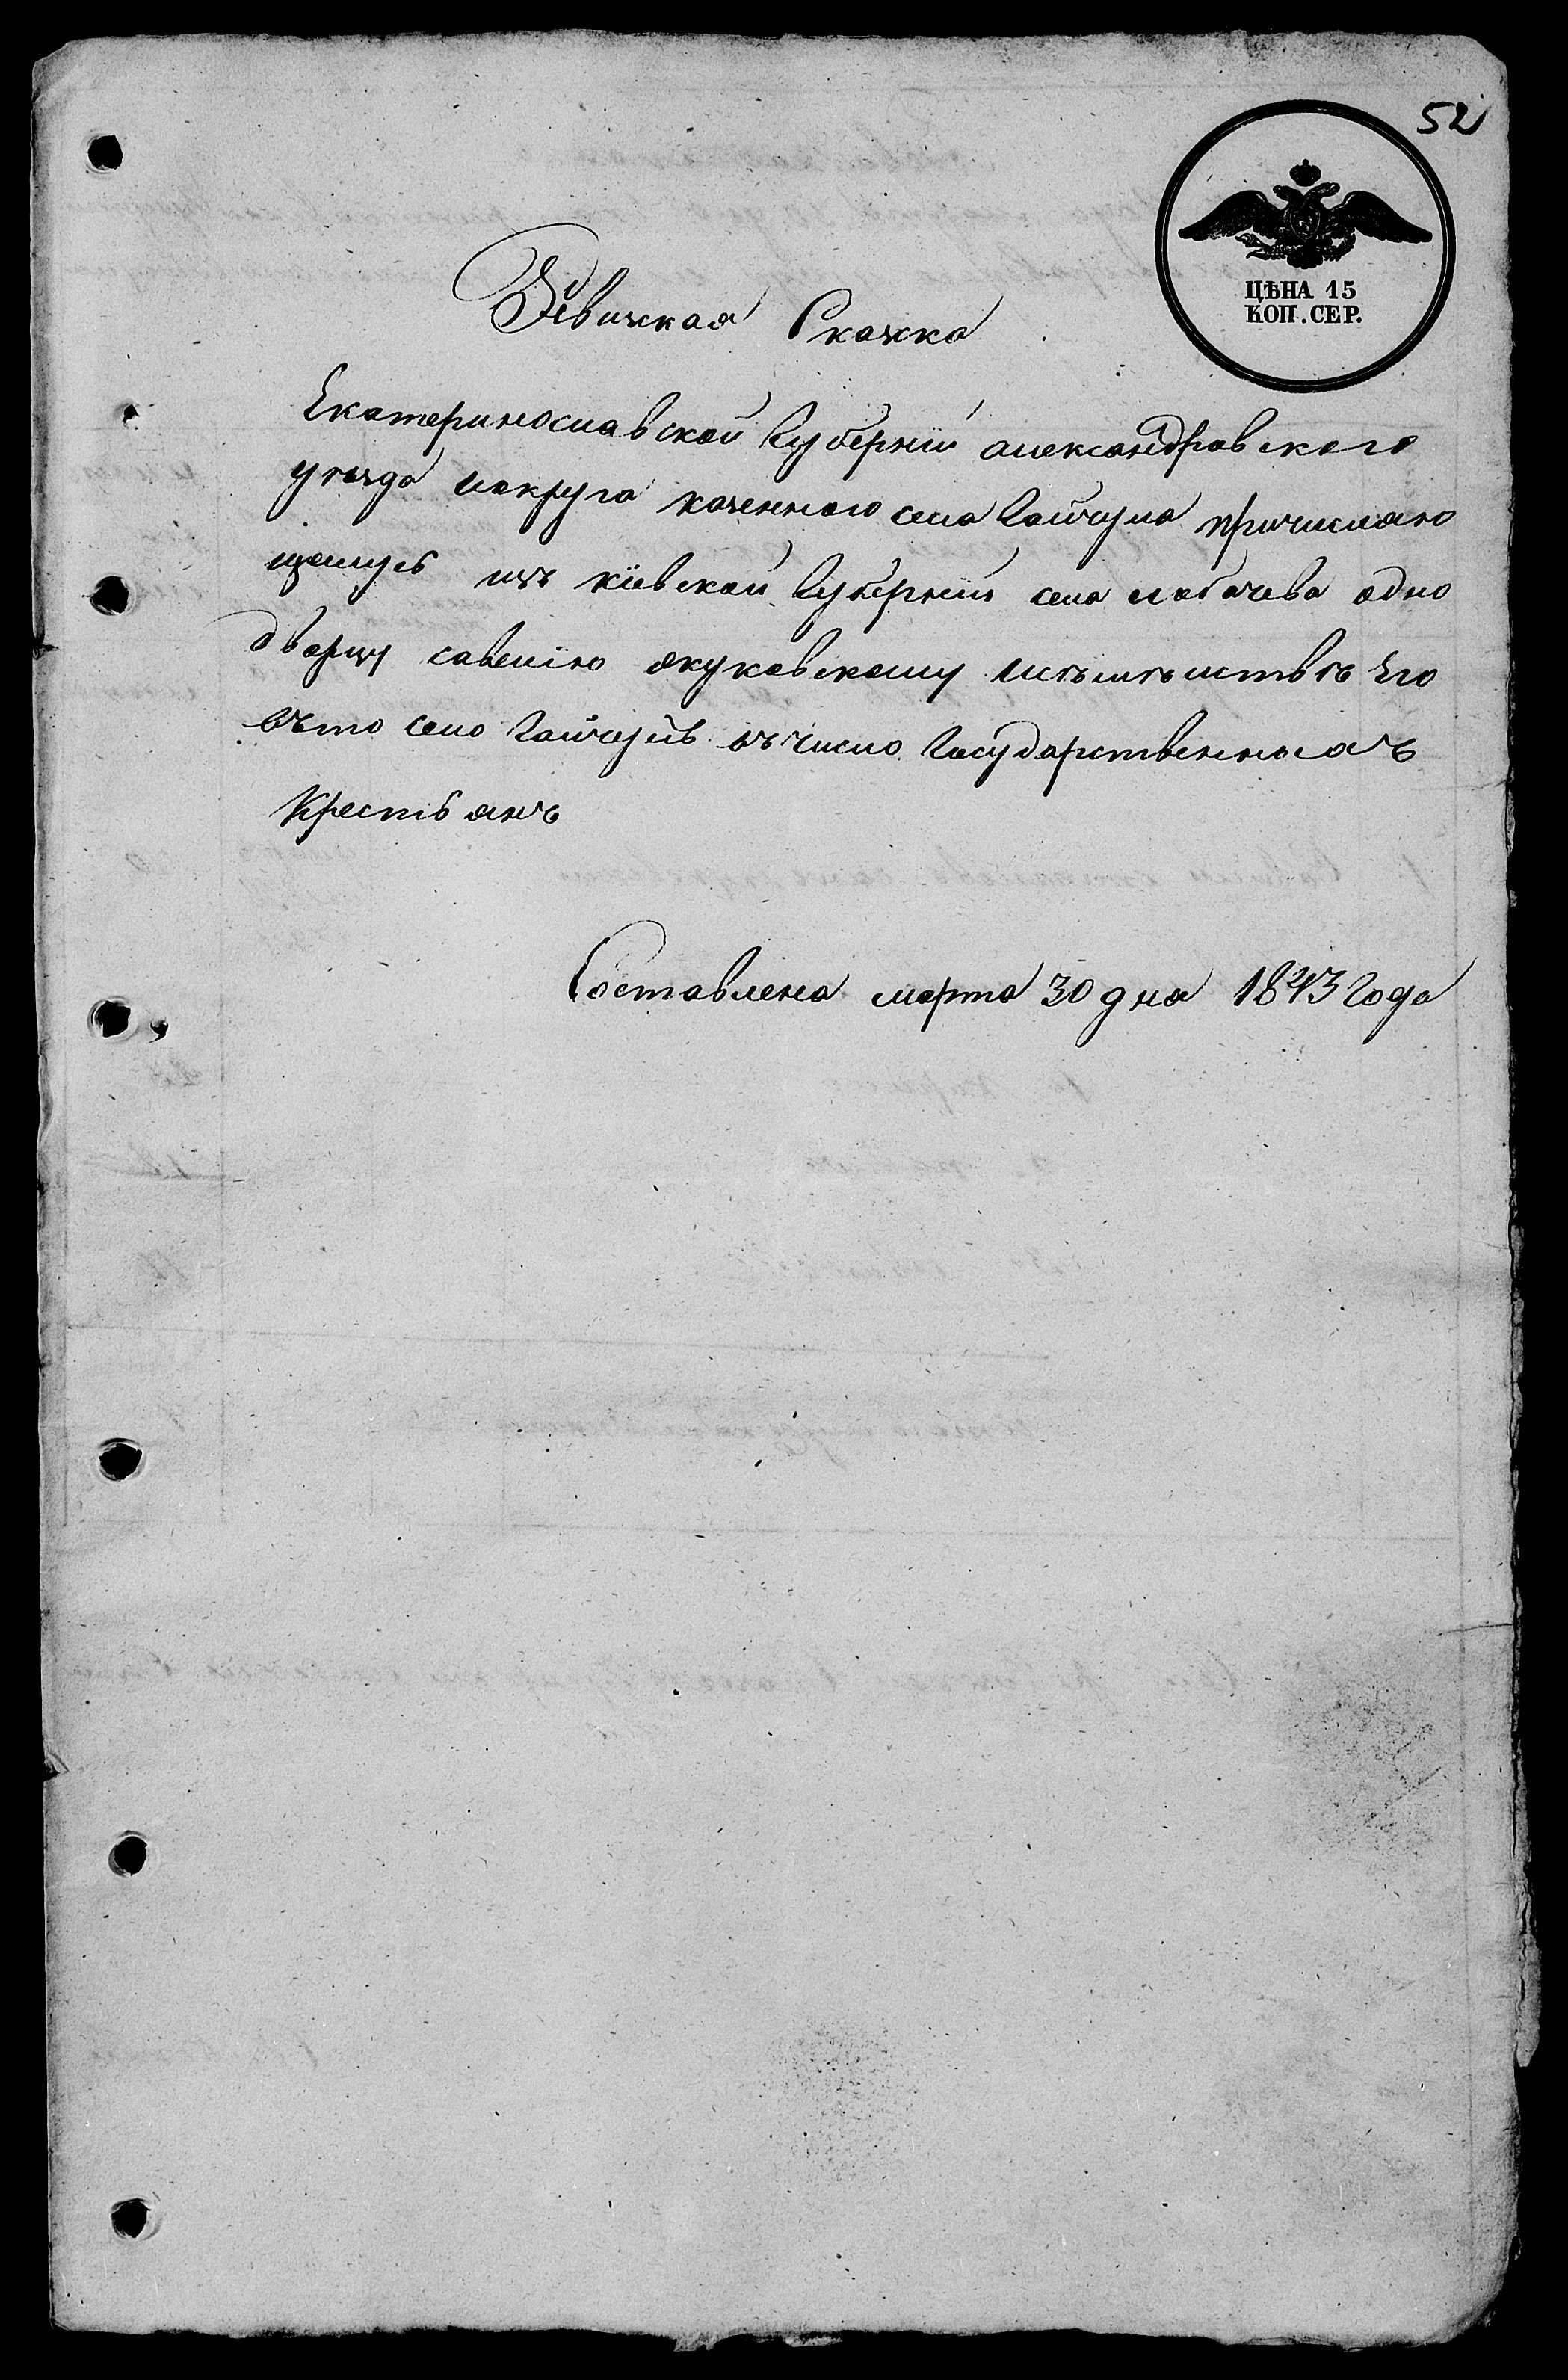 52
ЦѢНА 15
КОП. СЕР.
Ревижская Скажка
Екатеринославской Губернiи александровского
уѣзда иокруга казенного села Гайчула причисляю
щемусь изъ кiевской Губернiи села лобачева одно
дворцу савелiю якуковскому исѣмѣйствѣ Его
въто село Гайчулъ въ число Государственныхъ
Крестьянъ
Составлена марта 30 дня 1843 Года